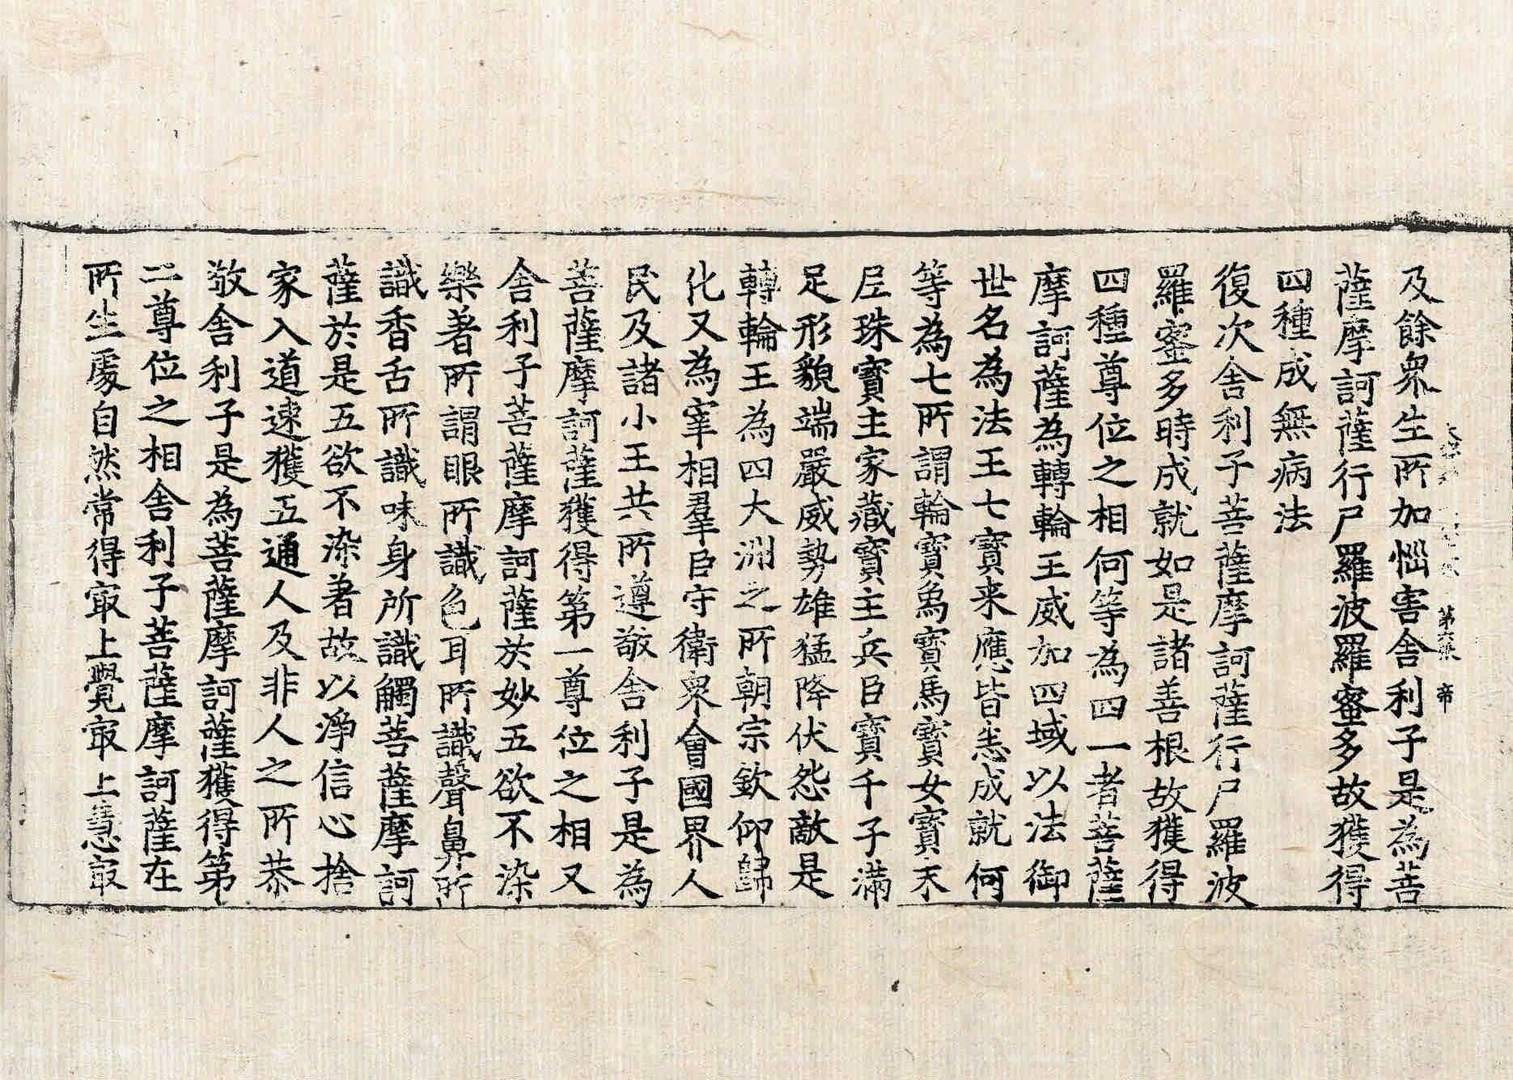 及餘衆生所加惱害舍利子是為菩
薩摩訶薩行尸羅波羅蜜多故獲得
四種成無病法
復次舍利子菩薩摩訶薩行尸羅波
羅蜜多時成就如是諸善根故獲得
四種尊位之相何等為四一者菩薩
摩訶薩為轉輪王威加四域以法御
世名為法王七寶来應皆悉成就何
等為七所謂輪寶象寶馬寶女寶末
尼珠寶主家藏寶主兵臣寶千子滿
足形貌端嚴威勢雄猛降伏怨敵是
轉輪王為四大洲之所朝宗欽仰歸
化又為宰相羣臣守衛衆會國界人
民及諸小王共所遵敬舍利子是為
菩薩摩訶薩獲得第一尊位之相又
舍利子菩薩摩訶薩於妙五欲不染
樂著所謂眼所識色耳所識聲鼻所
識香舌所識味身所識觸菩薩摩訶
薩於是五欲不染著故以淨信心捨
家入道速獲五通人及非人之所恭
敬舍利子是為菩薩摩訶薩獲得第
二尊位之相舍利子菩薩摩訶薩在
所生處自然常得㝡上覺㝡上慧㝡